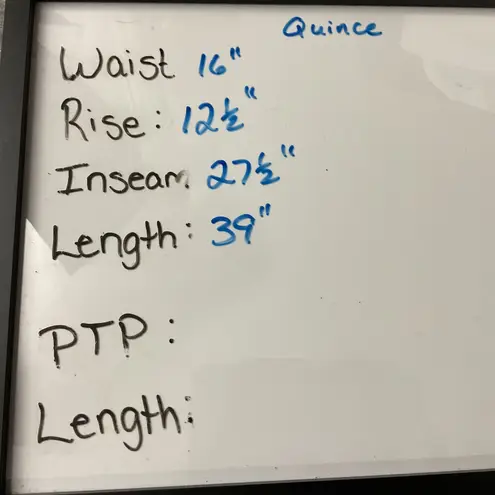 Quince
Waist 16"
Rise: 12½"
Inseam 27½"
Length: 39"
PTP:
Length: